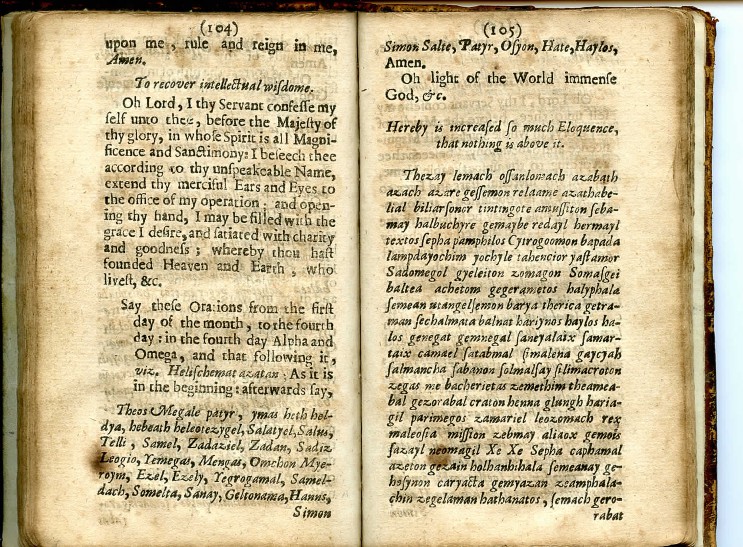 (104)
upon me, rule and reign in me,
Amen.
To recover intellectual wiſdome.
Oh Lord, I thy Servant confeſſe my
ſelf unto thee, before the Majeſty of
thy glory, in whoſe Spirit is all Magni-
ficence and Sanctimony: I beſeech thee
according to thy unſpeakeable Name,
extend thy merciful Ears and Eyes to
the office of my operation; and open-
ing thy hand, I may be filled with the
grace I deſire, and ſatiated with charity
and goodneſs; whereby thou haſt
founded Heaven and Earth, who
liveſt, &c.
Say theſe Orations from the firſt
day of the month, to the fourth
day: in the fourth day Alpha and
Omega, and that following it,
viz. Heliſchemat azatan; As it is
in the beginning: afterwards ſay,
Theos Megale patyr, ymas heth hel-
dya, hebeath heleotezygel, Salatyel, Salus,
Telli, Samel, Zadaziel, Zadan, Sadiz
Leogio, Yemegas, Mengas, Omchon Mye-
roym, Ezel, Ezely, Yegrogamal, Samel-
dach, Somelta, Sanay, Geltonama, Hanns,
Simon
(105)
Simon Salte, Patyr, Oſyon, Hate, Haylos,
Amen.
Oh light of the World immenſe
God, &c.
Hereby is increaſed ſo much Eloquence,
that nothing is above it.
Thezay lemach oſſanlomach azabath
azach azare geſſemon relaame azathabe-
lial biliarſonor tintingote amuſſiton ſeba-
may halbuchyre gemaybe redayl hermayl
textos ſepha pamphilos Cytrogoomon bapada
lampdayochim yochyle tahencior yaſtamor
Sadomegol gyeleiton zomagon Somaſgei
baltea achetom gegerametos halyphala
ſemean utangelſemon barya therica getra-
man ſechalmata balnat hariynos haylos ha-
los genegat gemnegal ſaneyalaix ſamar-
taix camael ſatabmal ſimalena gaycyah
ſalmancha ſabanon ſolmalſay ſilimacroton
zegas me bacherietas zemethim theamea-
bal gezorabal craton henna glungh haria-
gil parimegos zamariel leozomach rex
maleoſia miſſion zebmay aliaox gemois
ſazayl neomagil Xe Xe Sepha caphamal
azeton gezain holhanhihala ſemeanay ge-
hoſynon caryacta gemyazan zeamphala-
chin zegelaman hathanatos, ſemach gero-
rabat